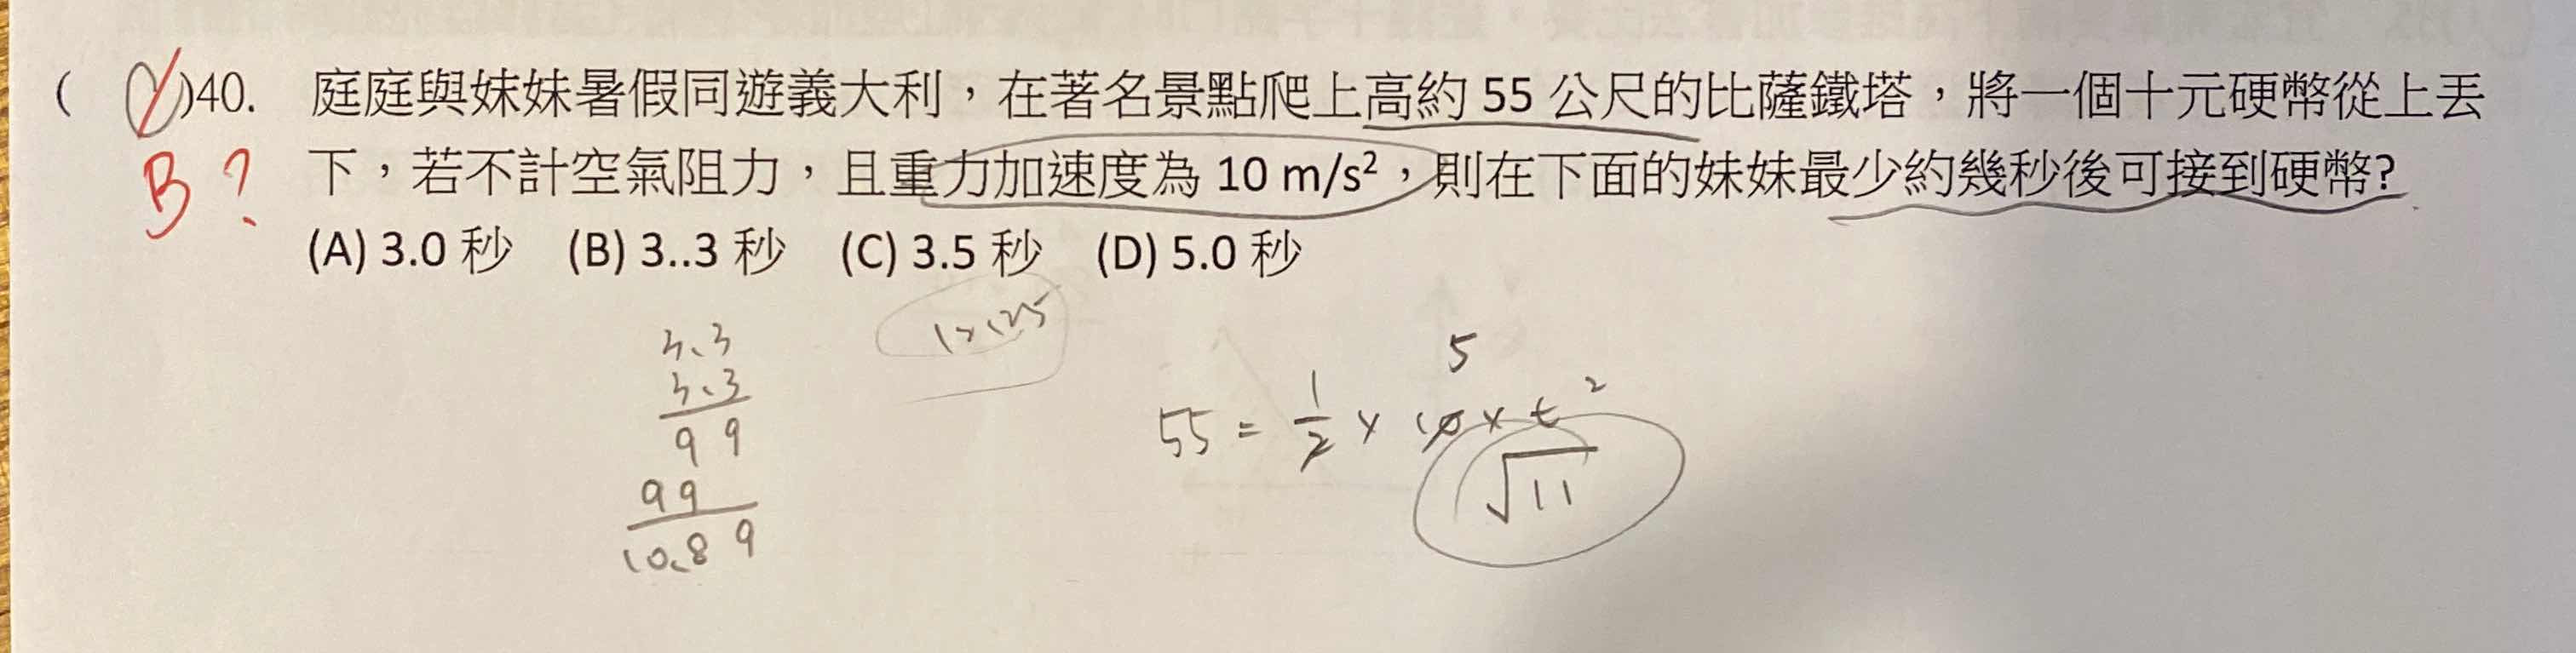 ( )40. 庭庭與妹妹暑假同遊義大利，在著名景點爬上高約 55 公尺的比薩鐵塔，將一個十元硬幣從上丟
B? 下，若不計空氣阻力，且重力加速度為 10 m/s²，則在下面的妹妹最少約幾秒後可接到硬幣?
(A) 3.0 秒 (B) 3..3 秒 (C) 3.5 秒 (D) 5.0 秒
3.3
3.3
99
99
10.89
5
55 = 1/2 × 10 × t²
√11